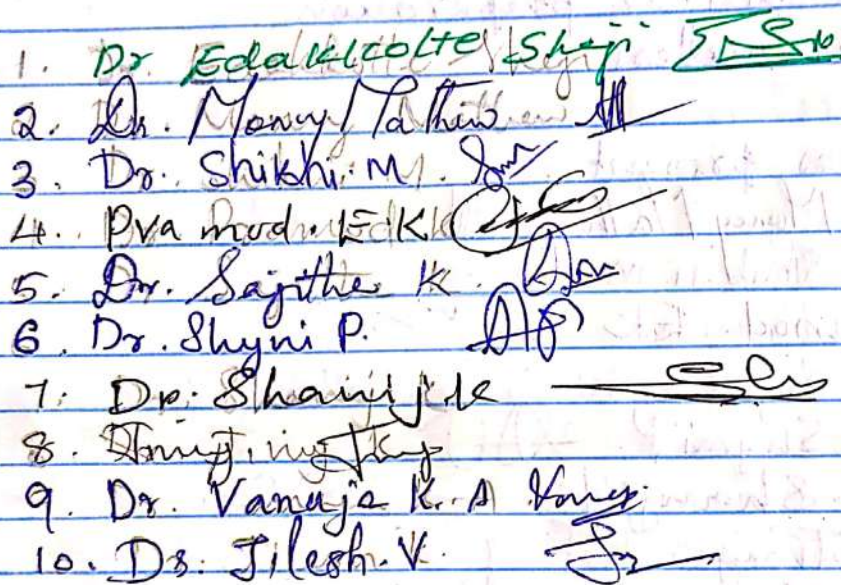 1. Dr Edakkotte Shaji
2. Dr. Money Mathew
3. Dr. Shikhi. M.
4. Pramod. E.K
5. Dr. Sajitha K.
6. Dr. Shyni P.
7. Dr. Shanij.k
8.
9. Dr. Vanaja K. A
10. Dr. Jilesh. V.